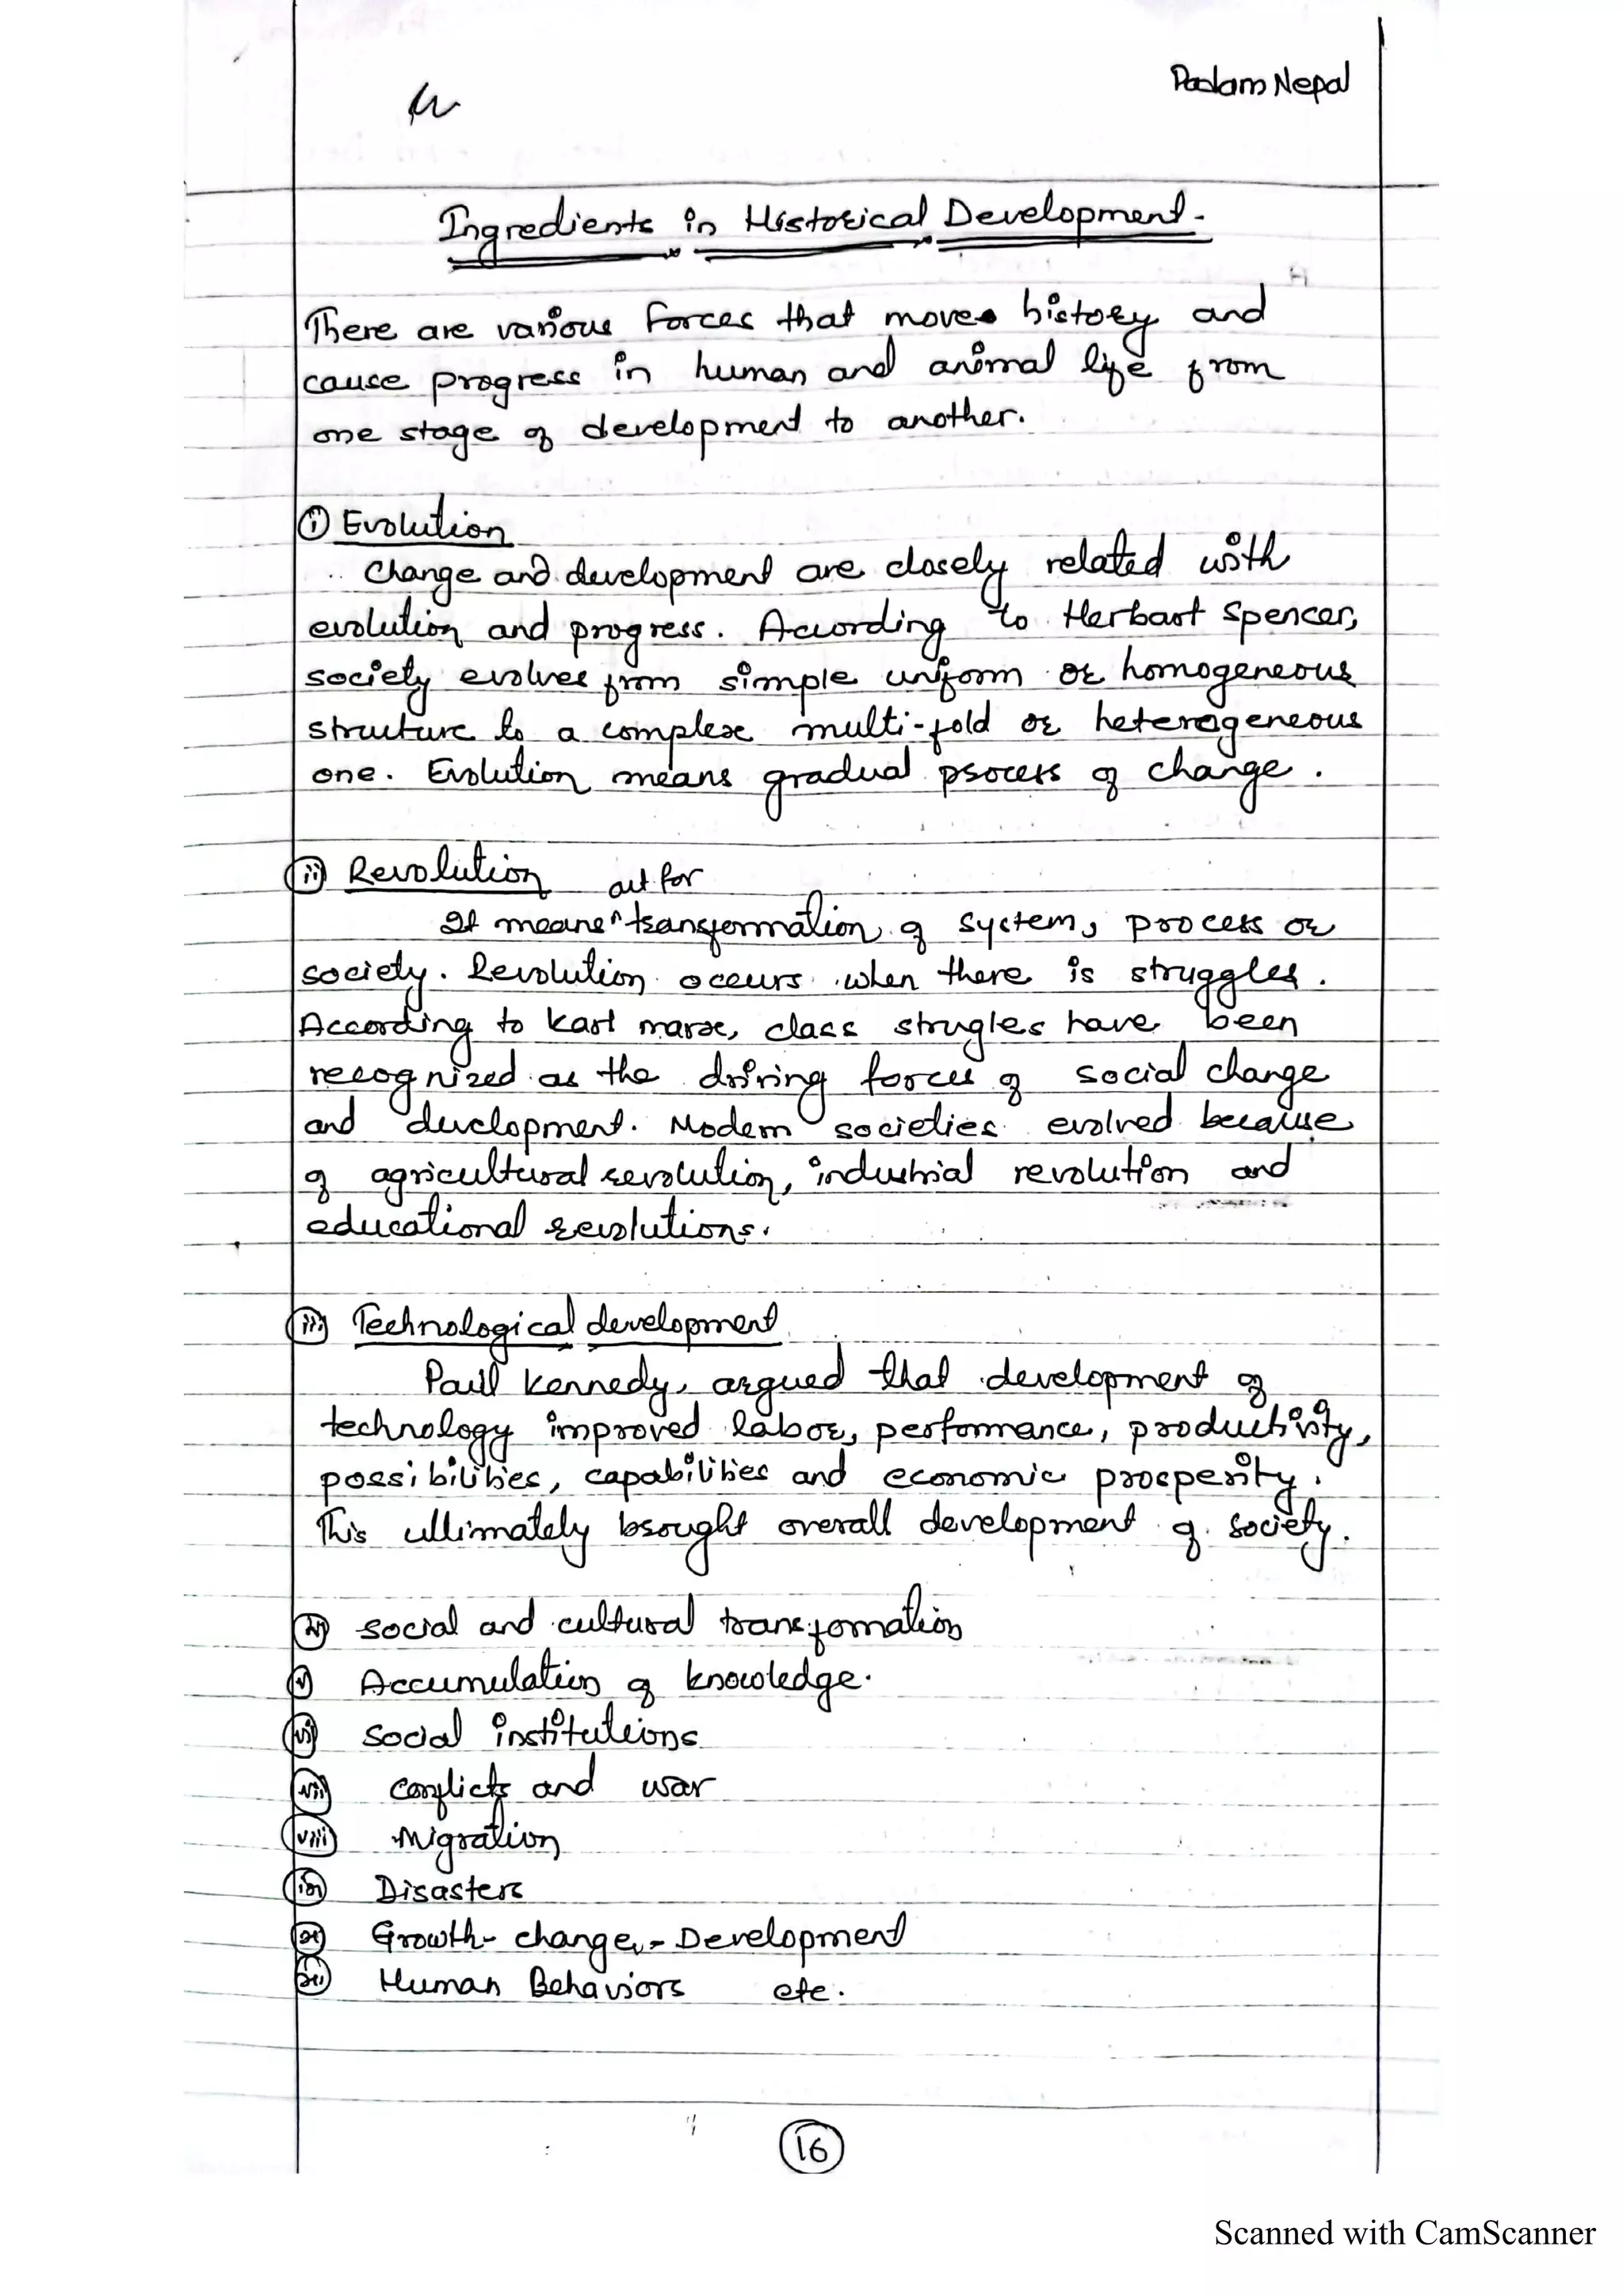 Padam Nepal
Ingredients in Historical Development.
There are various forces that moves history and
cause progress in human and animal life from
one stage of development to another.
i Evolution
Change and development are closely related with
evolution and progress. According to Herbart Spencer,
society evolves from simple uniform or homogeneous
structure to a complex multi-fold or heterogeneous
one. Evolution means gradual process of change.
ii Revolution
act for
It means ^ transformation of system, process or
society. Revolution occurs when there is struggles.
According to Karl marx, class strugles have been
recognized as the driving forces of social change
and development. Modern societies evolved because
of agricultural revolution, industrial revolution and
educational revolutions.
iii Technological development
Paul Kennedy, argued that development of
technology improved labor, performance, productivity,
possibilities, capabilities and economic prosperity.
This ultimately brought overall development of society.
iv social and cultural transformation
v Accumulation of knowledge.
vi social institutions
vii conflicts and war
viii Migration
ix Disasters
x Growth - change, - Development
xi Human Behaviors etc.
16
Scanned with CamScanner